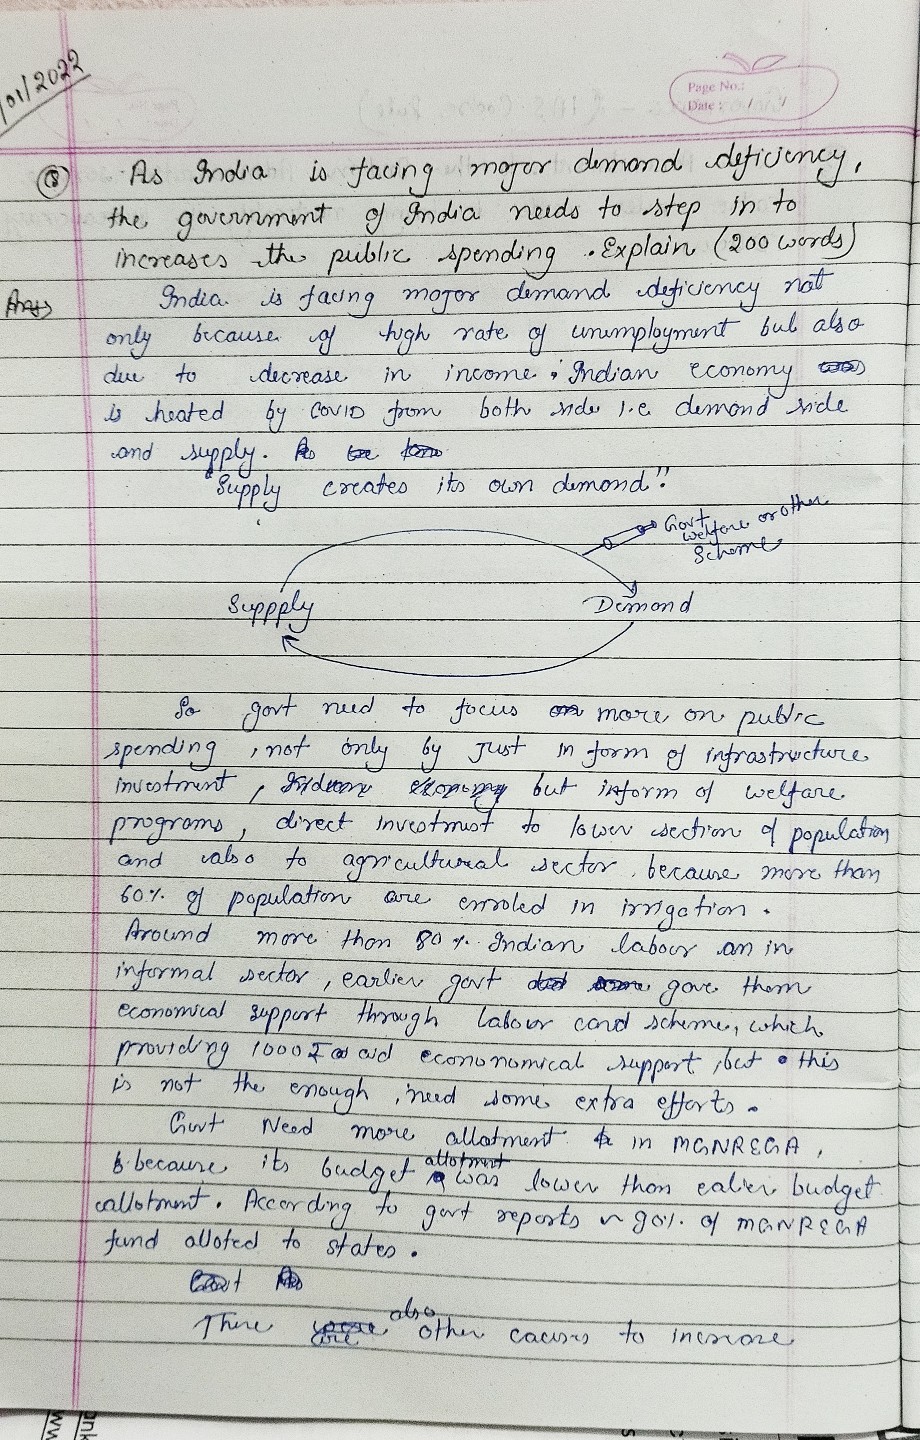 /01/2022
Page No.:
Date: / /
Q As India is facing major demand deficiency,
the government of India needs to step in to
increases the public spending. Explain (200 words)
Ans India is facing major demand deficiency not
only because of high rate of unemployment but also
due to decrease in income. Indian economy
is heated by COVID from both side i.e demand side
and supply.
"Supply creates its own demand".
Govt
welfare or other
Scheme
Suppply Demand
So govt need to focus more on public
spending, not only by just in form of infrastructure
investment, but inform of welfare
programs, direct investmest to lower section of population
and also to agricultural sector, because more than
60% of population are enroled in irrigation.
Around more than 80% Indian labour an in
informal sector, earlier govt gave them
economical support through labour card scheme, which
providing 1000₹ aid econonomical support, but this
is not the enough, need some extra efforts.
Govt Need more allotment in MGNREGA,
because its budget allotment was lower than ealier budget
allotment. According to govt reports ~ 90% of MGNREGA
fund alloted to states.
There also other causes to increase